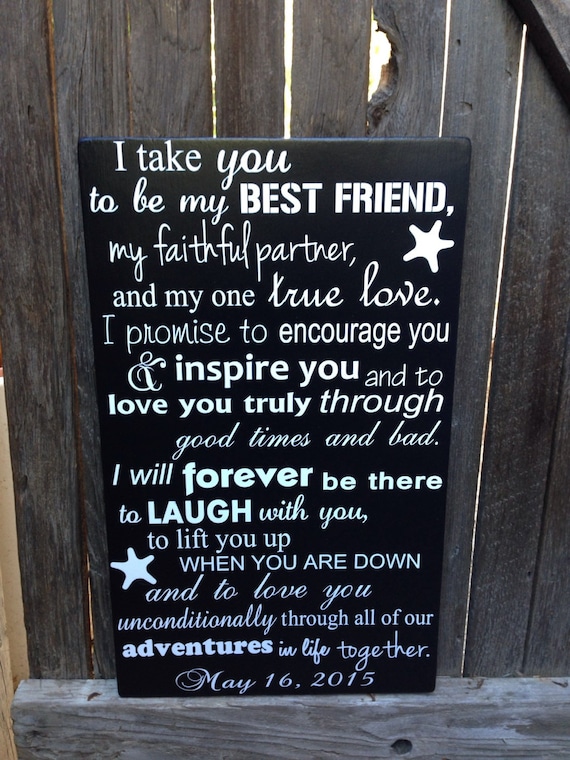 I take you
to be my BEST FRIEND,
my faithful partner,
and my one true love.
I promise to encourage you
& inspire you and to
love you truly through
good times and bad.
I will forever be there
to LAUGH with you,
to lift you up
WHEN YOU ARE DOWN
and to love you
unconditionally through all of our
adventures in life together.
May 16, 2015